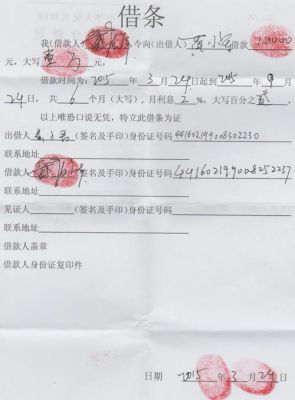 借条
我(借款人) 今向(出借人) 黄小军 借款 10000
元,大写 壹万
借款时间为: 2015 年 3 月 24 日起到 2015 年 9 月
24 日,共 6 个月(大写),月利息 2 %,大写百分之 贰 ,
以上唯恐口说无凭,特立此借条为证
出借人 (签名及手印)身份证号码
联系地址
借款人 (签名及手印)身份证号码
联系地址
见证人 (签名及手印)身份证号码
联系地址
借款人盖章
借款人身份证复印件
日期 2015 年 3 月 24 日